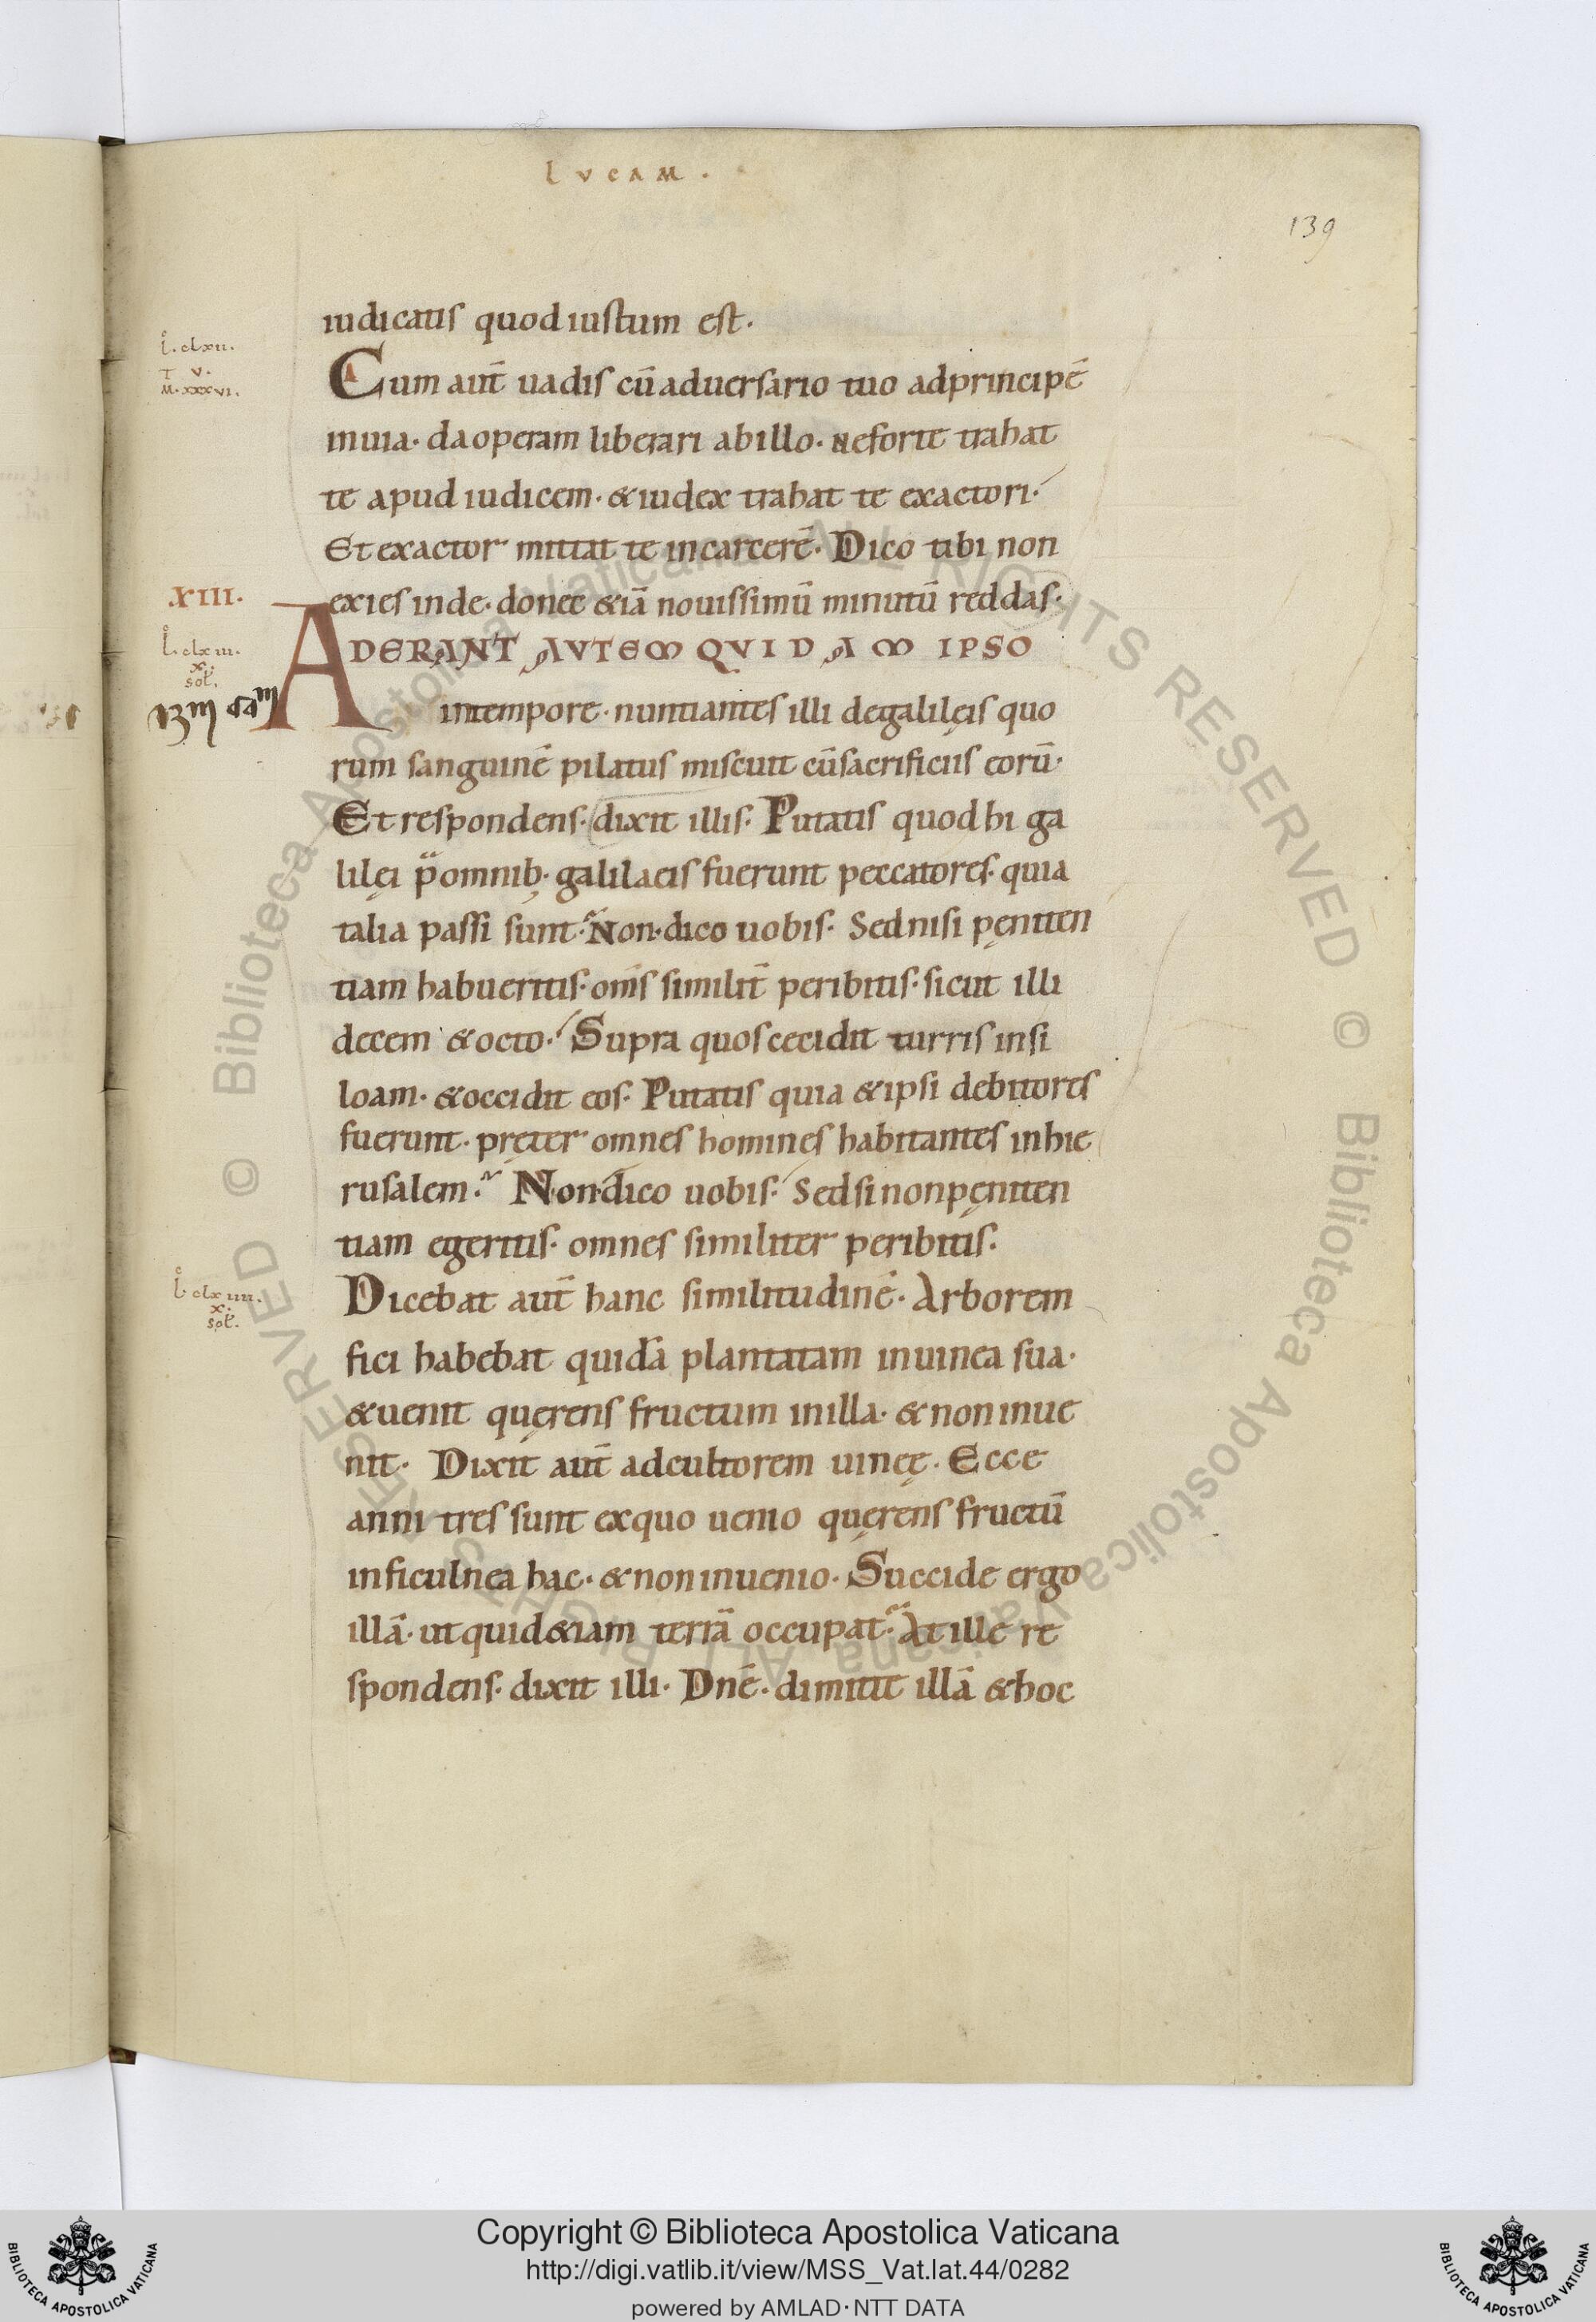 LVCAM.
139
iudicatis quod iustum est.
L. clxii.
T v.
M. xxxvi.
Cum aut̄ uadis cū aduersario tuo adprincipē
inuia. da operam liberari abillo. neforte trahat
te apud iudicem. & iudex trahat te exactori.
Et exactor mittat te incarcerē. Dico tibi non
exies inde. donec &iā nouissimū minutū reddas.
XIII.
L. clxiii.
x.
sol.
ADERANT AVTEM QVIDAM IPSO
intempore. nuntiantes illi degalilęis quo
rum sanguinē pilatus miscuit cūsacrificiis eorū.
Et respondens. dixit illis. Putatis quod hi ga
lilęi p̈omnib; galilaeis fuerunt peccatores. quia
talia passi sunt. Non. dico uobis. Sed nisi pęniten
tiam habueritis. om̄s similit̄ peribitis. sicut illi
decem & octo. Supra quos cecidit turris insi
loam. & occidit eos. Putatis quia & ipsi debitores
fuerunt. pręter omnes homines habitantes inhie
rusalem. Non. dico uobis. Sed si non pęniten
tiam egeritis. omnes similiter peribitis.
L. clxiiii.
x.
sol.
Dicebat aut̄ hanc similitudinē. Arborem
fici habebat quidā plantatam inuinea sua.
& uenit quęrens fructum inilla. & non inue
nit. Dixit aut̄ adcultorem uineę. Ecce
anni tres sunt exquo uenio quęrens fructū
inficulnea hac. & non inuenio. Succide ergo
illā. ut quid &iam terrā occupat. At ille re
spondens. dixit illi. Dnē. dimitte illā & hoc
© Biblioteca Apostolica Vaticana ALL RIGHTS RESERVED © Biblioteca Apostolica Vaticana ALL RIGHTS RESERVED
Copyright © Biblioteca Apostolica Vaticana
http://digi.vatlib.it/view/MSS_Vat.lat.44/0282
powered by AMLAD·NTT DATA
BIBLIOTECA APOSTOLICA VATICANA
BIBLIOTECA APOSTOLICA VATICANA